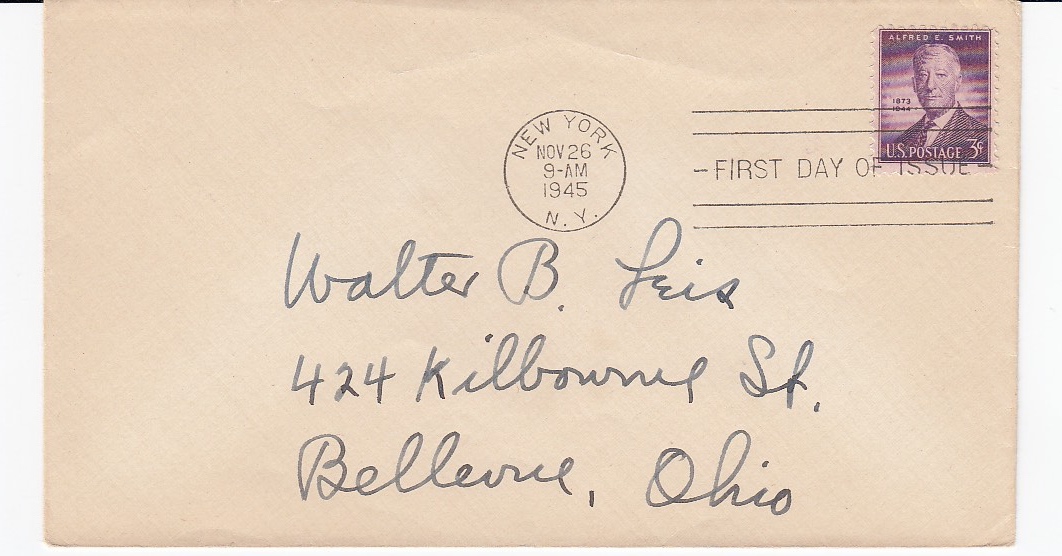 ALFRED E. SMITH
1873
1944
U.S. POSTAGE 3¢
NEW YORK
NOV 26
9-AM
1945
N.Y.
-FIRST DAY OF ISSUE-
Walter B. Leis
424 Kilbourne St.
Bellevue, Ohio